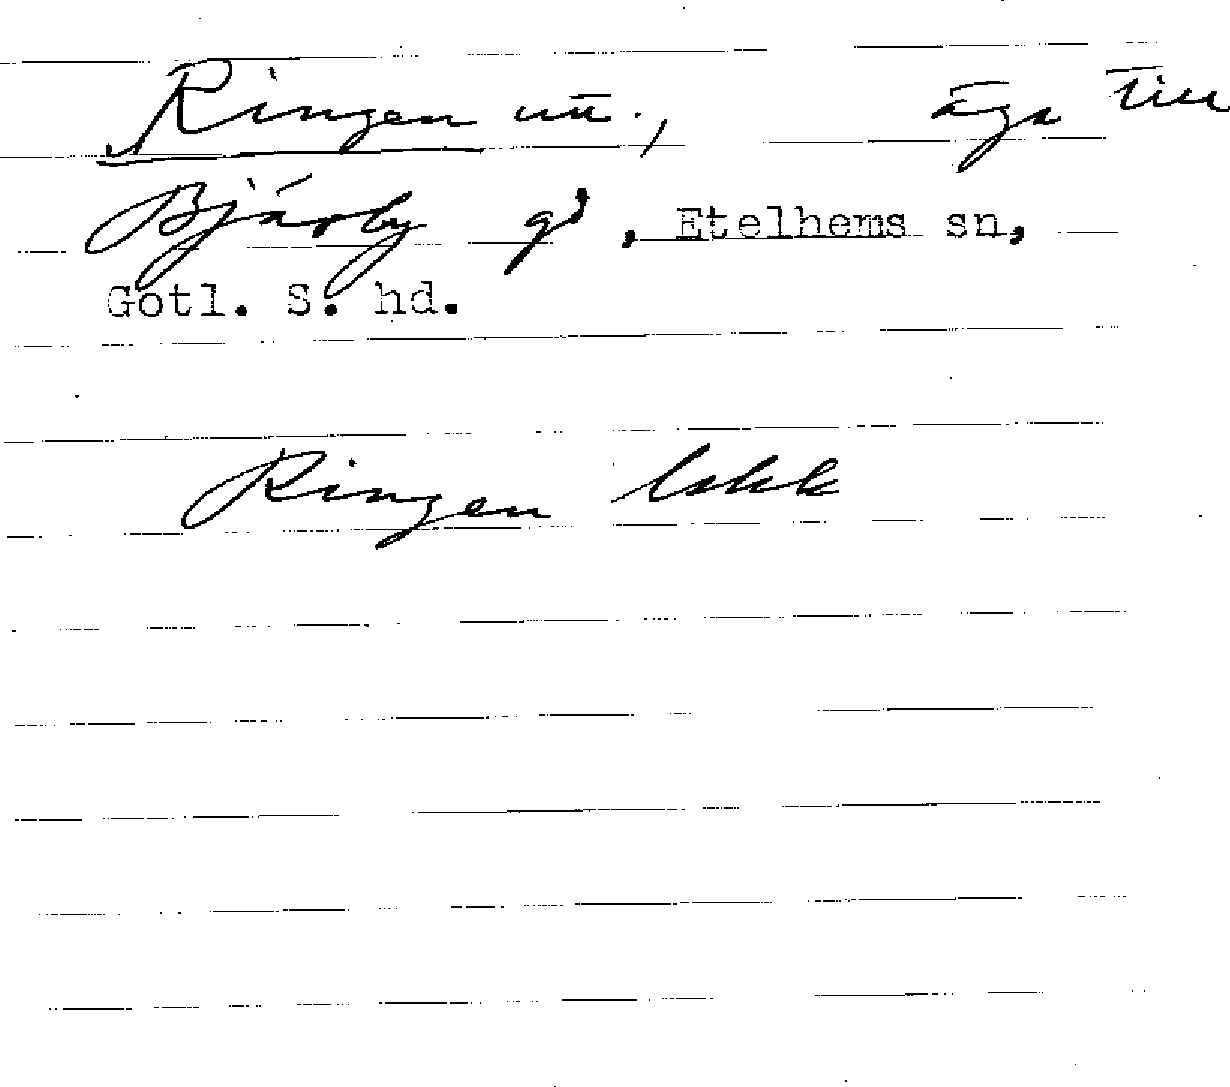 Ringen utt., äga till
Bjärby gd, Etelhems sn,
Gotl. S. hd.
Ringen